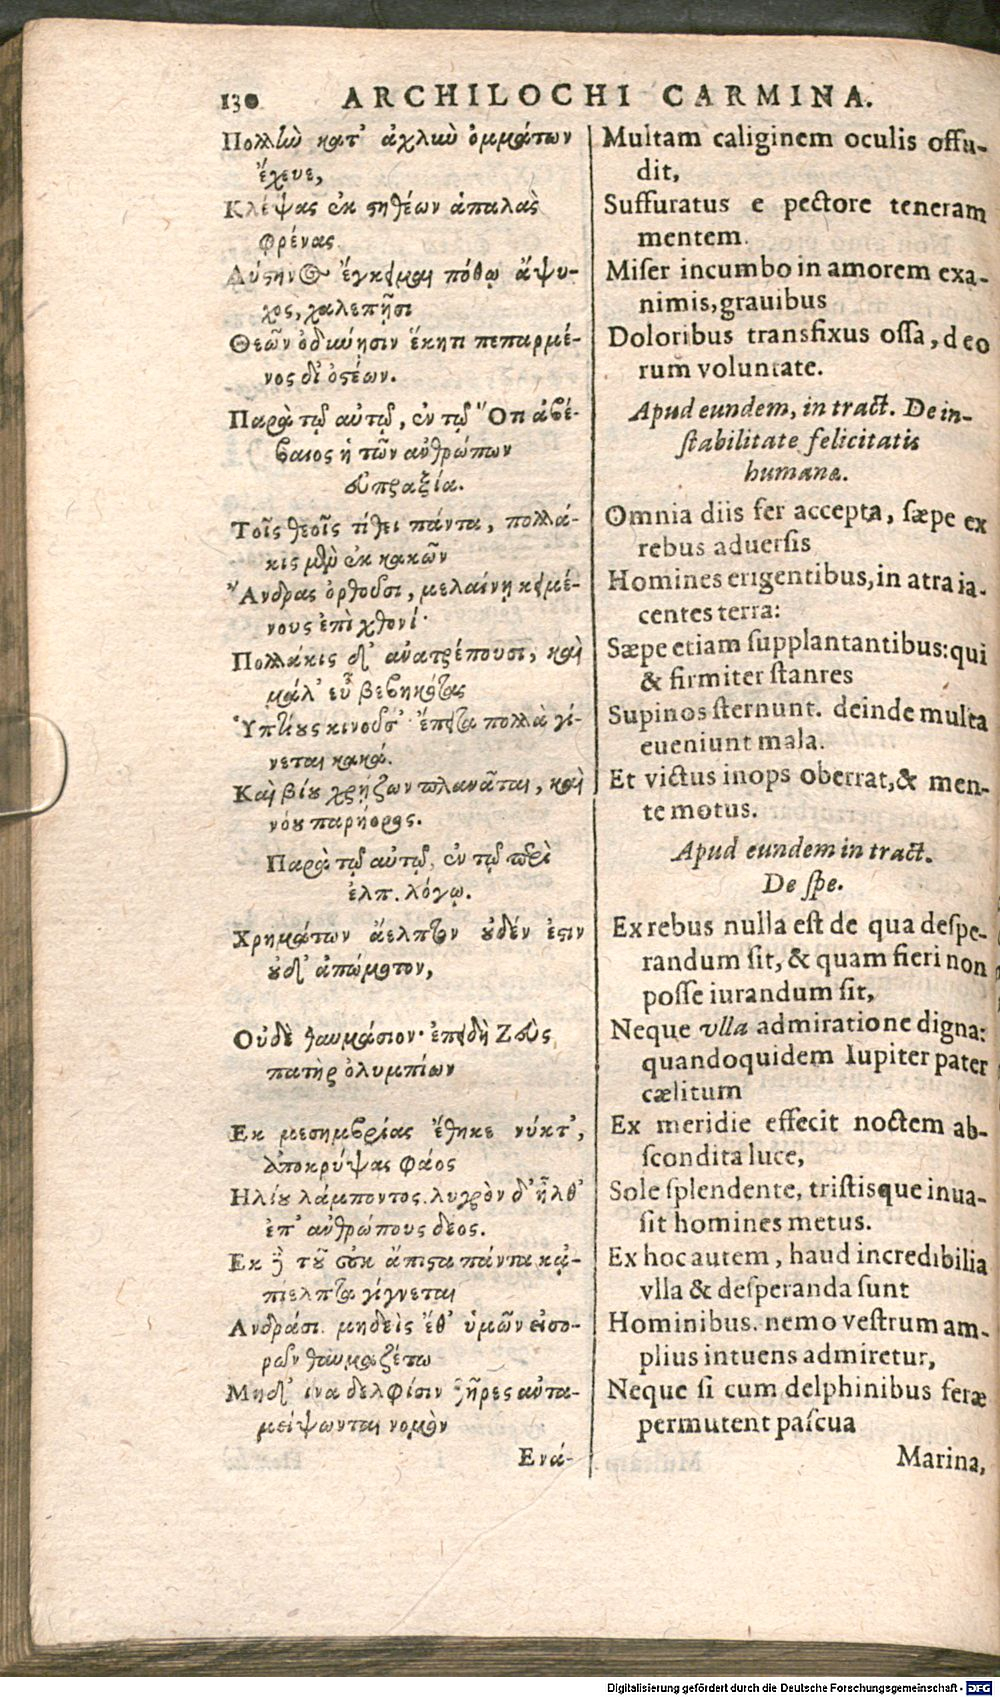 130 ARCHILOCHI CARMINA.
Πολλὴν κατ' ἀχλὺν ὀμμάτων
ἔχευε,
Κλέψας ἐκ στηθέων ἁπαλὰς
φρένας.
Δύστην⸺ος ἔγκειμαι πόθῳ ἄψυ-
χος, χαλεπῇσι
Θεῶν ὀδύνῃσιν ἕκητι πεπαρμέ-
νος δι' ὀστέων.
Παρὰ τῷ αὐτῷ, ἐν τῷ Ὅτι ἀβέ-
βαιος ἡ τῶν ἀνθρώπων
εὐπραξία.
Τοῖς θεοῖς τίθει πάντα, πολλά-
κις μὲν ἐκ κακῶν
Ἄνδρας ὀρθοῦσι, μελαίνῃ κειμέ-
νους ἐπὶ χθονί·
Πολλάκις δ' ἀνατρέπουσι, καὶ
μάλ' εὖ βεβηκότας
Ὑπτίους κινοῦσ'· ἔπειτα πολλὰ γί-
νεται κακά.
Καὶ βίου χρήζων πλανᾶται, καὶ
νόου παρήορος.
Παρὰ τῷ αὐτῷ, ἐν τῷ περὶ
ἐλπ. λόγῳ.
Χρημάτων ἄελπτον οὐδέν ἐστιν
οὐδ' ἀπώμοτον,
Οὐδὲ θαυμάσιον· ἐπειδὴ Ζεὺς
πατὴρ ὀλυμπίων
Εκ μεσημβρίας ἔθηκε νύκτ',
ἀποκρύψας φάος
Ηλίου λάμποντος. λυγρὸν δ' ἦλθ'
ἐπ' ἀνθρώπους δέος.
Εκ δὲ τοῦ οὐκ ἄπιστα πάντα κᾀ-
πίελπτα γίγνεται
Ανδράσι. μηδεὶς ἔθ' ὑμῶν εἰσο-
ρῶν θαυμαζέτω
Μηδ' ἵνα δελφῖσιν θῆρες ἀντα-
μείψωνται νομὸν
Ενά-
Multam caliginem oculis offu-
dit,
Suffuratus e pectore teneram
mentem.
Miser incumbo in amorem exa-
nimis, grauibus
Doloribus transfixus ossa, deo
rum voluntate.
Apud eundem, in tract. De in-
stabilitate felicitatis
humanæ.
Omnia diis fer accepta, sæpe ex
rebus aduersis
Homines erigentibus, in atra ia-
centes terra:
Sæpe etiam supplantantibus: qui
& firmiter stanres
Supinos sternunt. deinde multa
eueniunt mala.
Et victus inops oberrat, & men-
te motus.
Apud eundem in tract.
De spe.
Ex rebus nulla est de qua despe-
randum sit, & quam fieri non
posse iurandum sit,
Neque vlla admiratione digna:
quandoquidem Iupiter pater
cælitum
Ex meridie effecit noctem ab-
scondita luce,
Sole splendente, tristisque inua-
sit homines metus.
Ex hoc autem, haud incredibilia
vlla & desperanda sunt
Hominibus. nemo vestrum am-
plius intuens admiretur,
Neque si cum delphinibus feræ
permutent pascua
Marina,
Digitalisierung gefördert durch die Deutsche Forschungsgemeinschaft - DFG